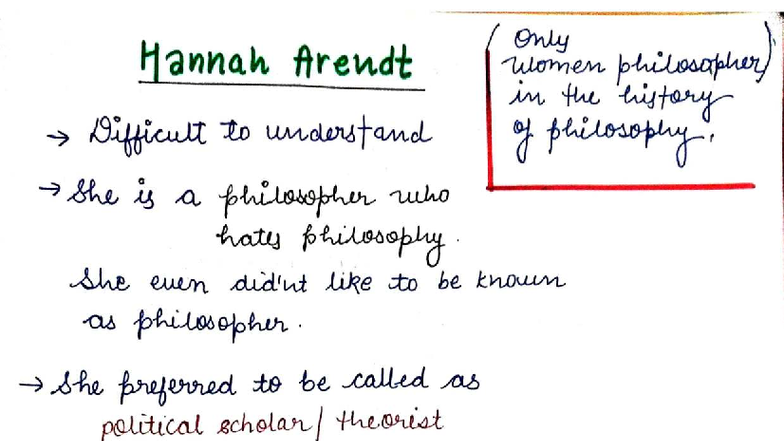 Hannah Arendt
(Only
women philosopher)
in the history
of philosophy.
→ Difficult to understand
→ She is a philosopher who
hates philosophy.
She even did'nt like to be known
as philosopher.
→ She preferred to be called as
political scholar/ theorist